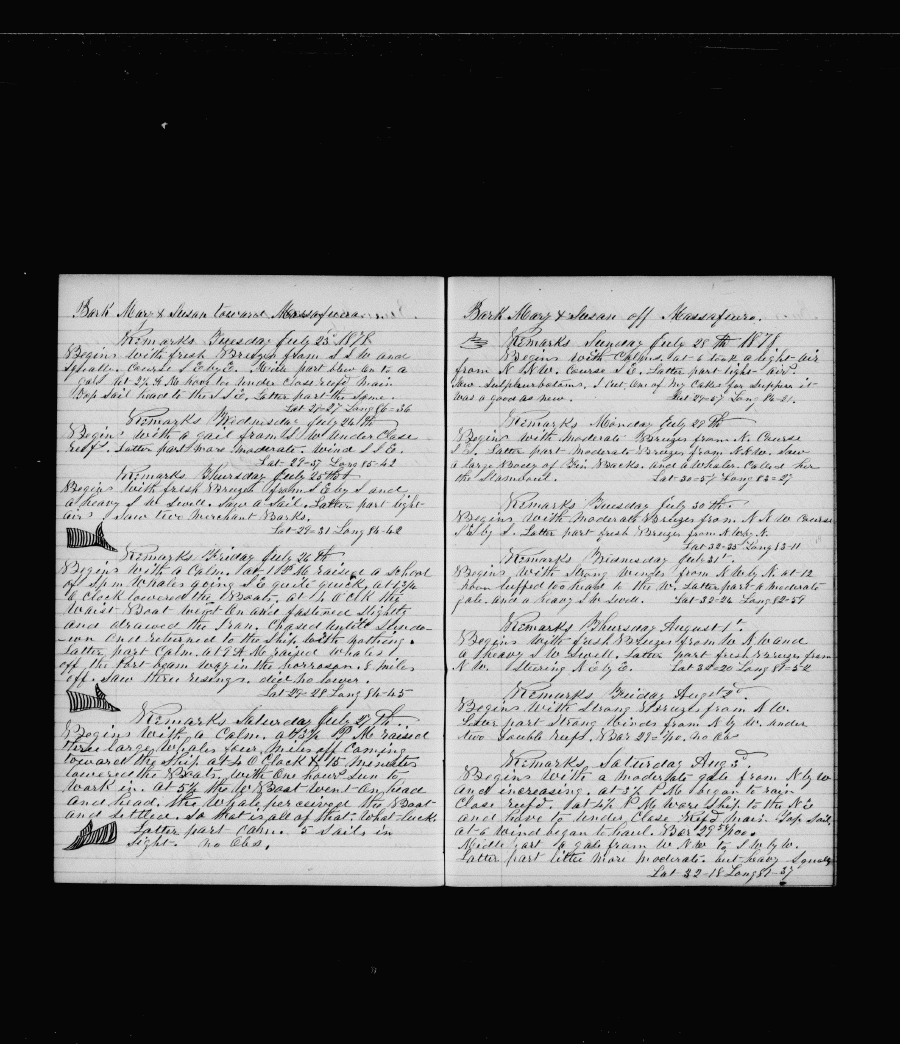 Bark Mary & Susan toward Massafuero.
Remarks Tuesday July 23d 1878
Begins with fresh Breezes from S S W and
Squally. Course S E by E. Midle part blew on to a
gale. At 2½ P.M. hove to under close reefd main
Top Sail head to the S E. Latter part the same.
Lat 29-27 Long 86-36
Remarks Wednesday July 24th
Begins with a gail from S W under Close
reefs. Latter part more moderate. Wind S S E.
Lat 29-37 Long 85-42
Remarks Thursday July 25th
Begins with fresh Breezes from S E by S and
a heavy S W Swell. Saw a Sail. Latter part light
air's Saw two Merchant Barks.
Lat 29-31 Long 84-42
Remarks Friday July 26th
Begins with a Calm. at 1 P.M. raised a School
of Spm Whales going S E quite quick. at 1¾
O Clock lowered the Boats. at 4 O Clk the
Waist Boat went On and fastened Slightly
and drawed the Iron. Chased untill Sundo-
-wn And returned to the Ship with nothing.
Latter part Calm. At 7 A M raised whales
off the Port beam way in the horroson. 8 miles
off. Saw three risings. did no lower.
Lat 29-28 Long 84-45
Remarks Saturday July 27th.
Begins with a Calm. at 3½ P M raised
three large Whales four Miles off Coming
toward the Ship. at 4 O Clock & 15 Minutes
lowered the Boats. with One hours Sun to
work in. at 5¼ the W Boat went On head
and head. the Whale perceived the Boat
and Settled. So that is all of that. What luck.
Latter part Calm. 5 Sail in
Sight. No Obs.
Bark Mary & Susan off Massafuero.
Remarks Sunday July 28th 1878
Begins with Calms. at 6 took a light air
from N N W. Course S E. Latter part light airs.
Saw Sulphurbotoms. I Cut One of my Cakes for Supper it
was a good as new. Lat 29-57 Long 84-21.
Remarks Monday July 29th
Begins with moderate Breezes from N. Course
S E. Latter part moderate Breezes from N N W. Saw
a large Body of Fin Backs. and a Whaler. Called her
the Stamboul. Lat 30-57 Long 83-27
Remarks Tuesday July 30th.
Begins with moderate Breezes from N N W Course
S E by S. Latter part fresh Breezes from N W by N.
Lat 32-35 Long 83-11
Remarks Wednesday July 31st
Begins with Strong Winds from N W by N. at 12
hour luffed too head to the W. Latter part a moderate
gale. and a heavy S W Swell. Lat 32-24 Long 82-59
Remarks Thursday August 1st.
Begins with fresh Breezes from W N W and
a heavy S W Swell. Latter part fresh Breezes from
N W. Stering N E by E. Lat 32-20 Long 81-52
Remarks Friday August 2d.
Begins with Strong Breezes from N W.
Later part Strong Winds from N by W. under
two Double reefs. Bar 29-70. No Obs
Remarks Saturday Aug 3d.
Begins with a moderate gale from N by W
and increasing. at 3½ P.M. began to rain
Close reef'd. at 4½ P M Wore Ship to the N E
and hove to under Close reefd main Top Sail.
at 6 wind began to haul. Bar
Midle part a gale from W N W to S W by W.
Latter part little more moderate. but heavy Squalls
Lat 32-18 Long 81-37